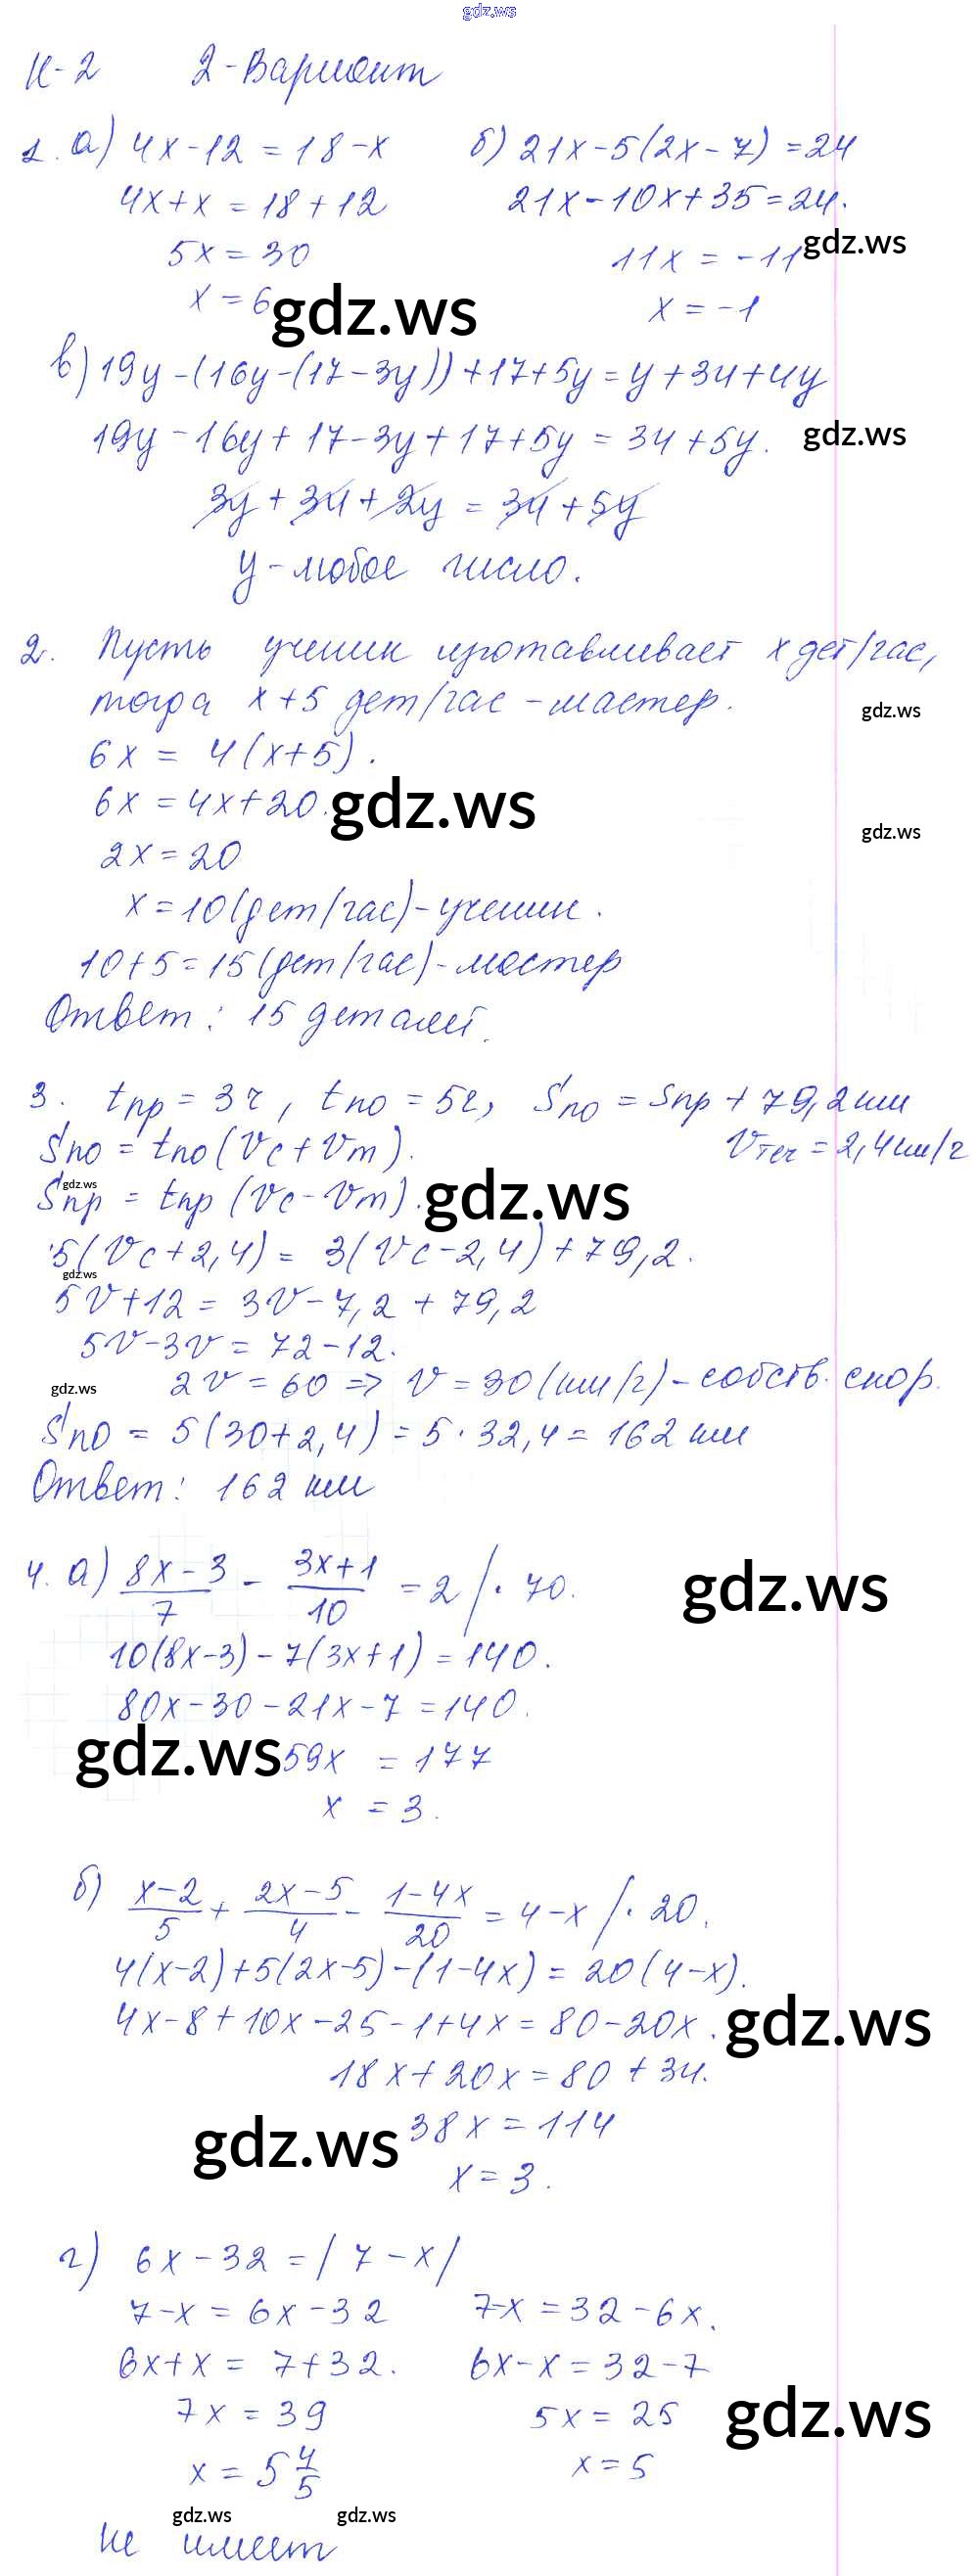 gdz.ws
К-2 2-Вариант
1. а) 4x-12 = 18-x б) 21x-5(2x-7) =24
4x+x = 18+12 21x-10x+35=24.
5x = 30 11x = -11 gdz.ws
x = 6 gdz.ws x = -1
в) 19y-(16y-(17-3y))+17+5y=y+34+4y
19y-16y+17-3y+17+5y = 34+5y. gdz.ws
3y+34+2y = 34+5y
y-любое число.
2. Пусть ученик изготавливает x дет/час,
тогда x+5 дет/час - мастер. gdz.ws
6x = 4(x+5).
6x = 4x+20. gdz.ws
gdz.ws
2x = 20
x = 10 (дет/час) - ученик.
10+5 = 15 (дет/час) - мастер
Ответ: 15 деталей.
3. tпр = 3ч, tпо = 5ч, Sпо = Sпр + 79,2 км
Sпо = tпо (Vс + Vт). Vтеч = 2,4 км/ч
gdz.ws
Sпр = tпр (Vс - Vт). gdz.ws
5(Vс+2,4) = 3(Vс-2,4)+79,2.
gdz.ws
5V+12 = 3V-7,2 + 79,2
5V-3V = 72-12.
gdz.ws 2V = 60 => V = 30 (км/ч) - собств. скор.
Sпо = 5(30+2,4) = 5·32,4 = 162 км
Ответ: 162 км
4. а) (8x-3)/7 - (3x+1)/10 = 2 /·70. gdz.ws
10(8x-3)-7(3x+1) = 140.
80x-30-21x-7 = 140.
gdz.ws 59x = 177
x = 3.
б) (x-2)/5 + (2x-5)/4 - (1-4x)/20 = 4-x /·20.
4(x-2)+5(2x-5)-(1-4x) = 20(4-x).
4x-8+10x-25-1+4x = 80-20x. gdz.ws
18x+20x = 80+34.
gdz.ws 38x = 114
x = 3.
г) 6x-32 = |7-x|
7-x = 6x-32 7-x = 32-6x.
6x+x = 7+32. 6x-x = 32-7
7x = 39 5x = 25 gdz.ws
x = 5 4/5 x = 5
gdz.ws gdz.ws
Не имеет